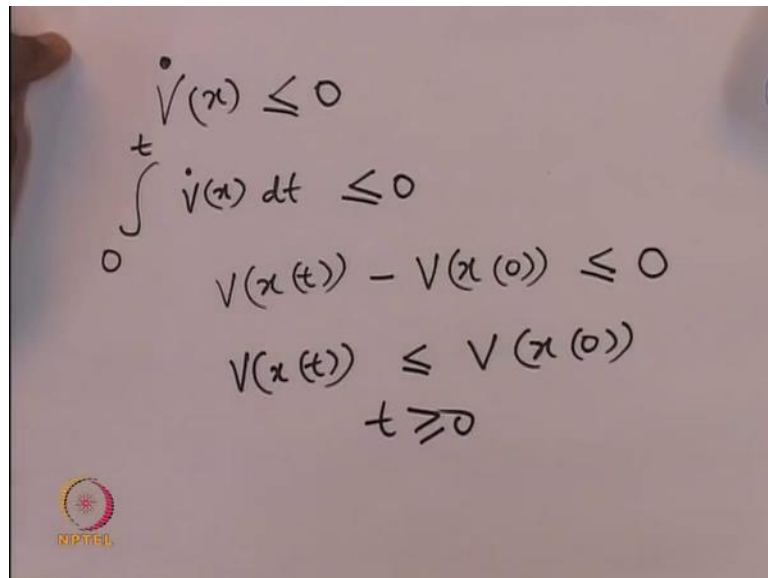 V̇(x) ≤ 0
∫₀ᵗ v̇(x) dt ≤ 0
V(x(t)) − V(x(0)) ≤ 0
V(x(t)) ≤ V(x(0))
t ≥ 0
NPTEL